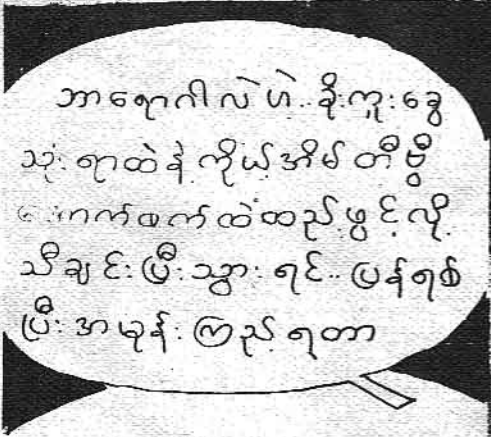 ဘာရောဂါလဲဟဲ့.. ခိုးကူးခွေ
သုံးရာထဲနဲ့ ကိုယ့်အိမ် တီဗွီ
အောက်စက်ထဲထည့်ဖွင့်လို့
သီချင်းပြီးသွားရင်.. ပြန်ရစ်
ပြီးအမုန်းကြည့်ရတာ